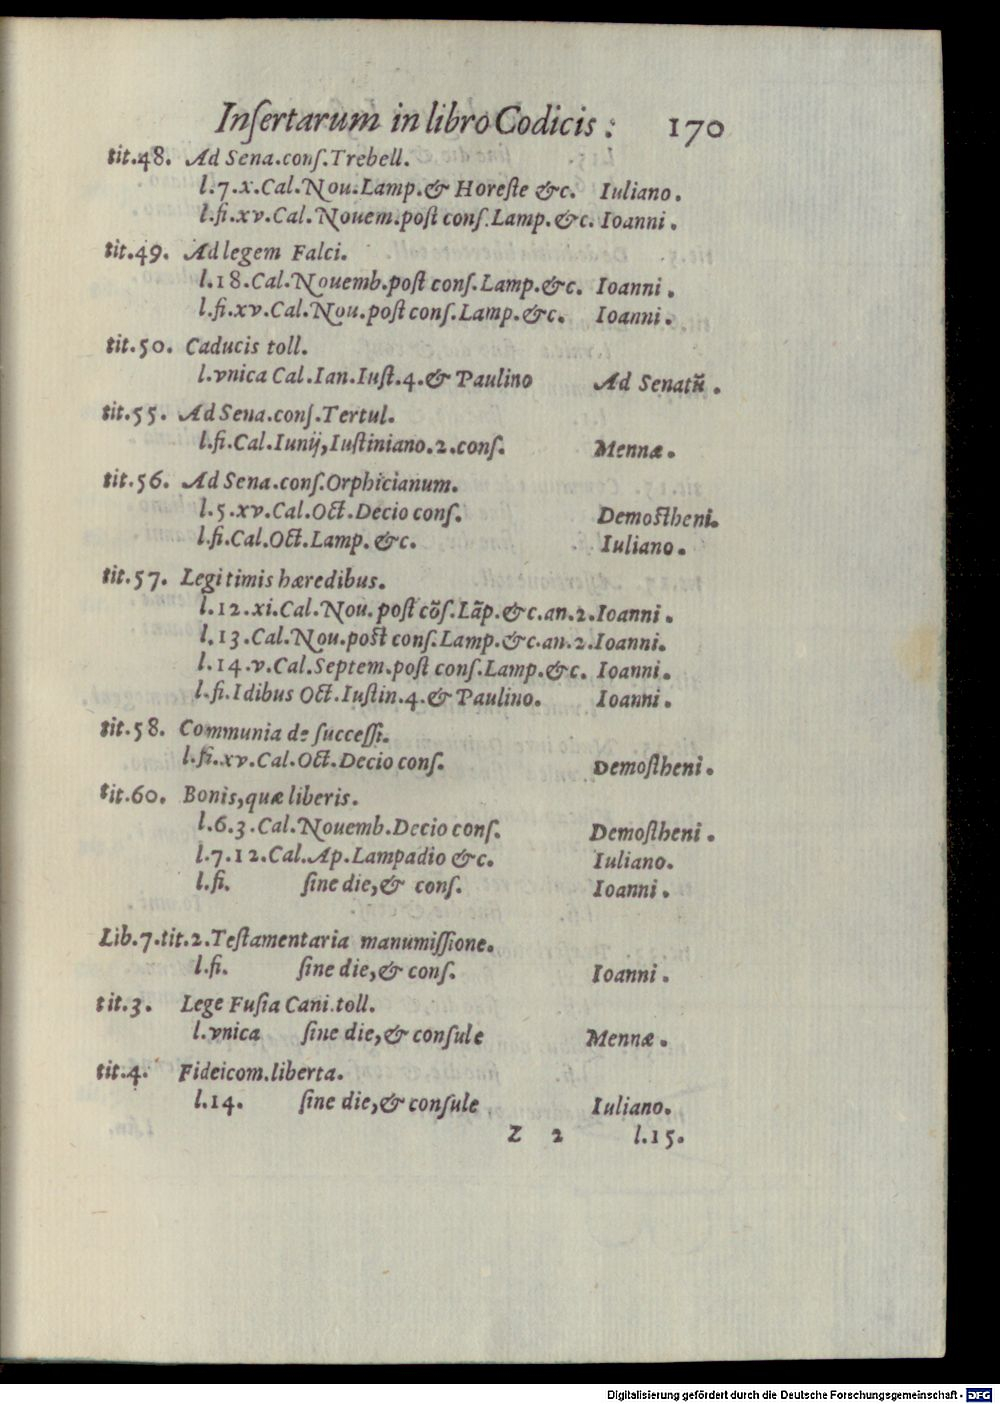 Inſertarum in libro Codicis : 170
tit.48. Ad Sena.conſ.Trebell.
l.7.x.Cal.Nou.Lamp.& Horeſte &c. Iuliano.
l.fi.xv.Cal.Nouem.poſt conſ.Lamp.&c. Ioanni.
tit.49. Ad legem Falci.
l.18.Cal.Nouemb.poſt conſ.Lamp.&c. Ioanni.
l.fi.xv.Cal.Nou.poſt conſ.Lamp.&c. Ioanni.
tit.50. Caducis toll.
l.vnica Cal.Ian.Iuſt.4.& Paulino Ad Senatũ.
tit.55. Ad Sena.conſ.Tertul.
l.fi.Cal.Iunij,Iuſtiniano.2.conſ. Mennæ.
tit.56. Ad Sena.conſ.Orphicianum.
l.5.xv.Cal.Oct.Decio conſ. Demoſtheni.
l.fi.Cal.Oct.Lamp. &c. Iuliano.
tit.57. Legitimis hæredibus.
l.12.xi.Cal.Nou. poſt cõſ.Lãp.&c.an.2.Ioanni.
l.13.Cal.Nou.poſt conſ.Lamp.&c.an.2.Ioanni.
l.14.v.Cal.Septem.poſt conſ.Lamp.&c. Ioanni.
l.fi.Idibus Oct.Iuſtin.4.& Paulino. Ioanni.
tit.58. Communia de ſucceſſi.
l.fi.xv.Cal.Oct.Decio conſ. Demoſtheni.
tit.60. Bonis,quæ liberis.
l.6.3.Cal.Nouemb.Decio conſ. Demoſtheni.
l.7.12.Cal.Ap.Lampadio &c. Iuliano.
l.fi. ſine die,& conſ. Ioanni.
Lib.7.tit.2.Teſtamentaria manumiſſione.
l.fi. ſine die,& conſ. Ioanni.
tit.3. Lege Fuſia Cani.toll.
l.vnica ſine die,& conſule Mennæ.
tit.4. Fideicom.liberta.
l.14. ſine die,& conſule Iuliano.
Z 2 l.15.
Digitalisierung gefördert durch die Deutsche Forschungsgemeinschaft - DFG